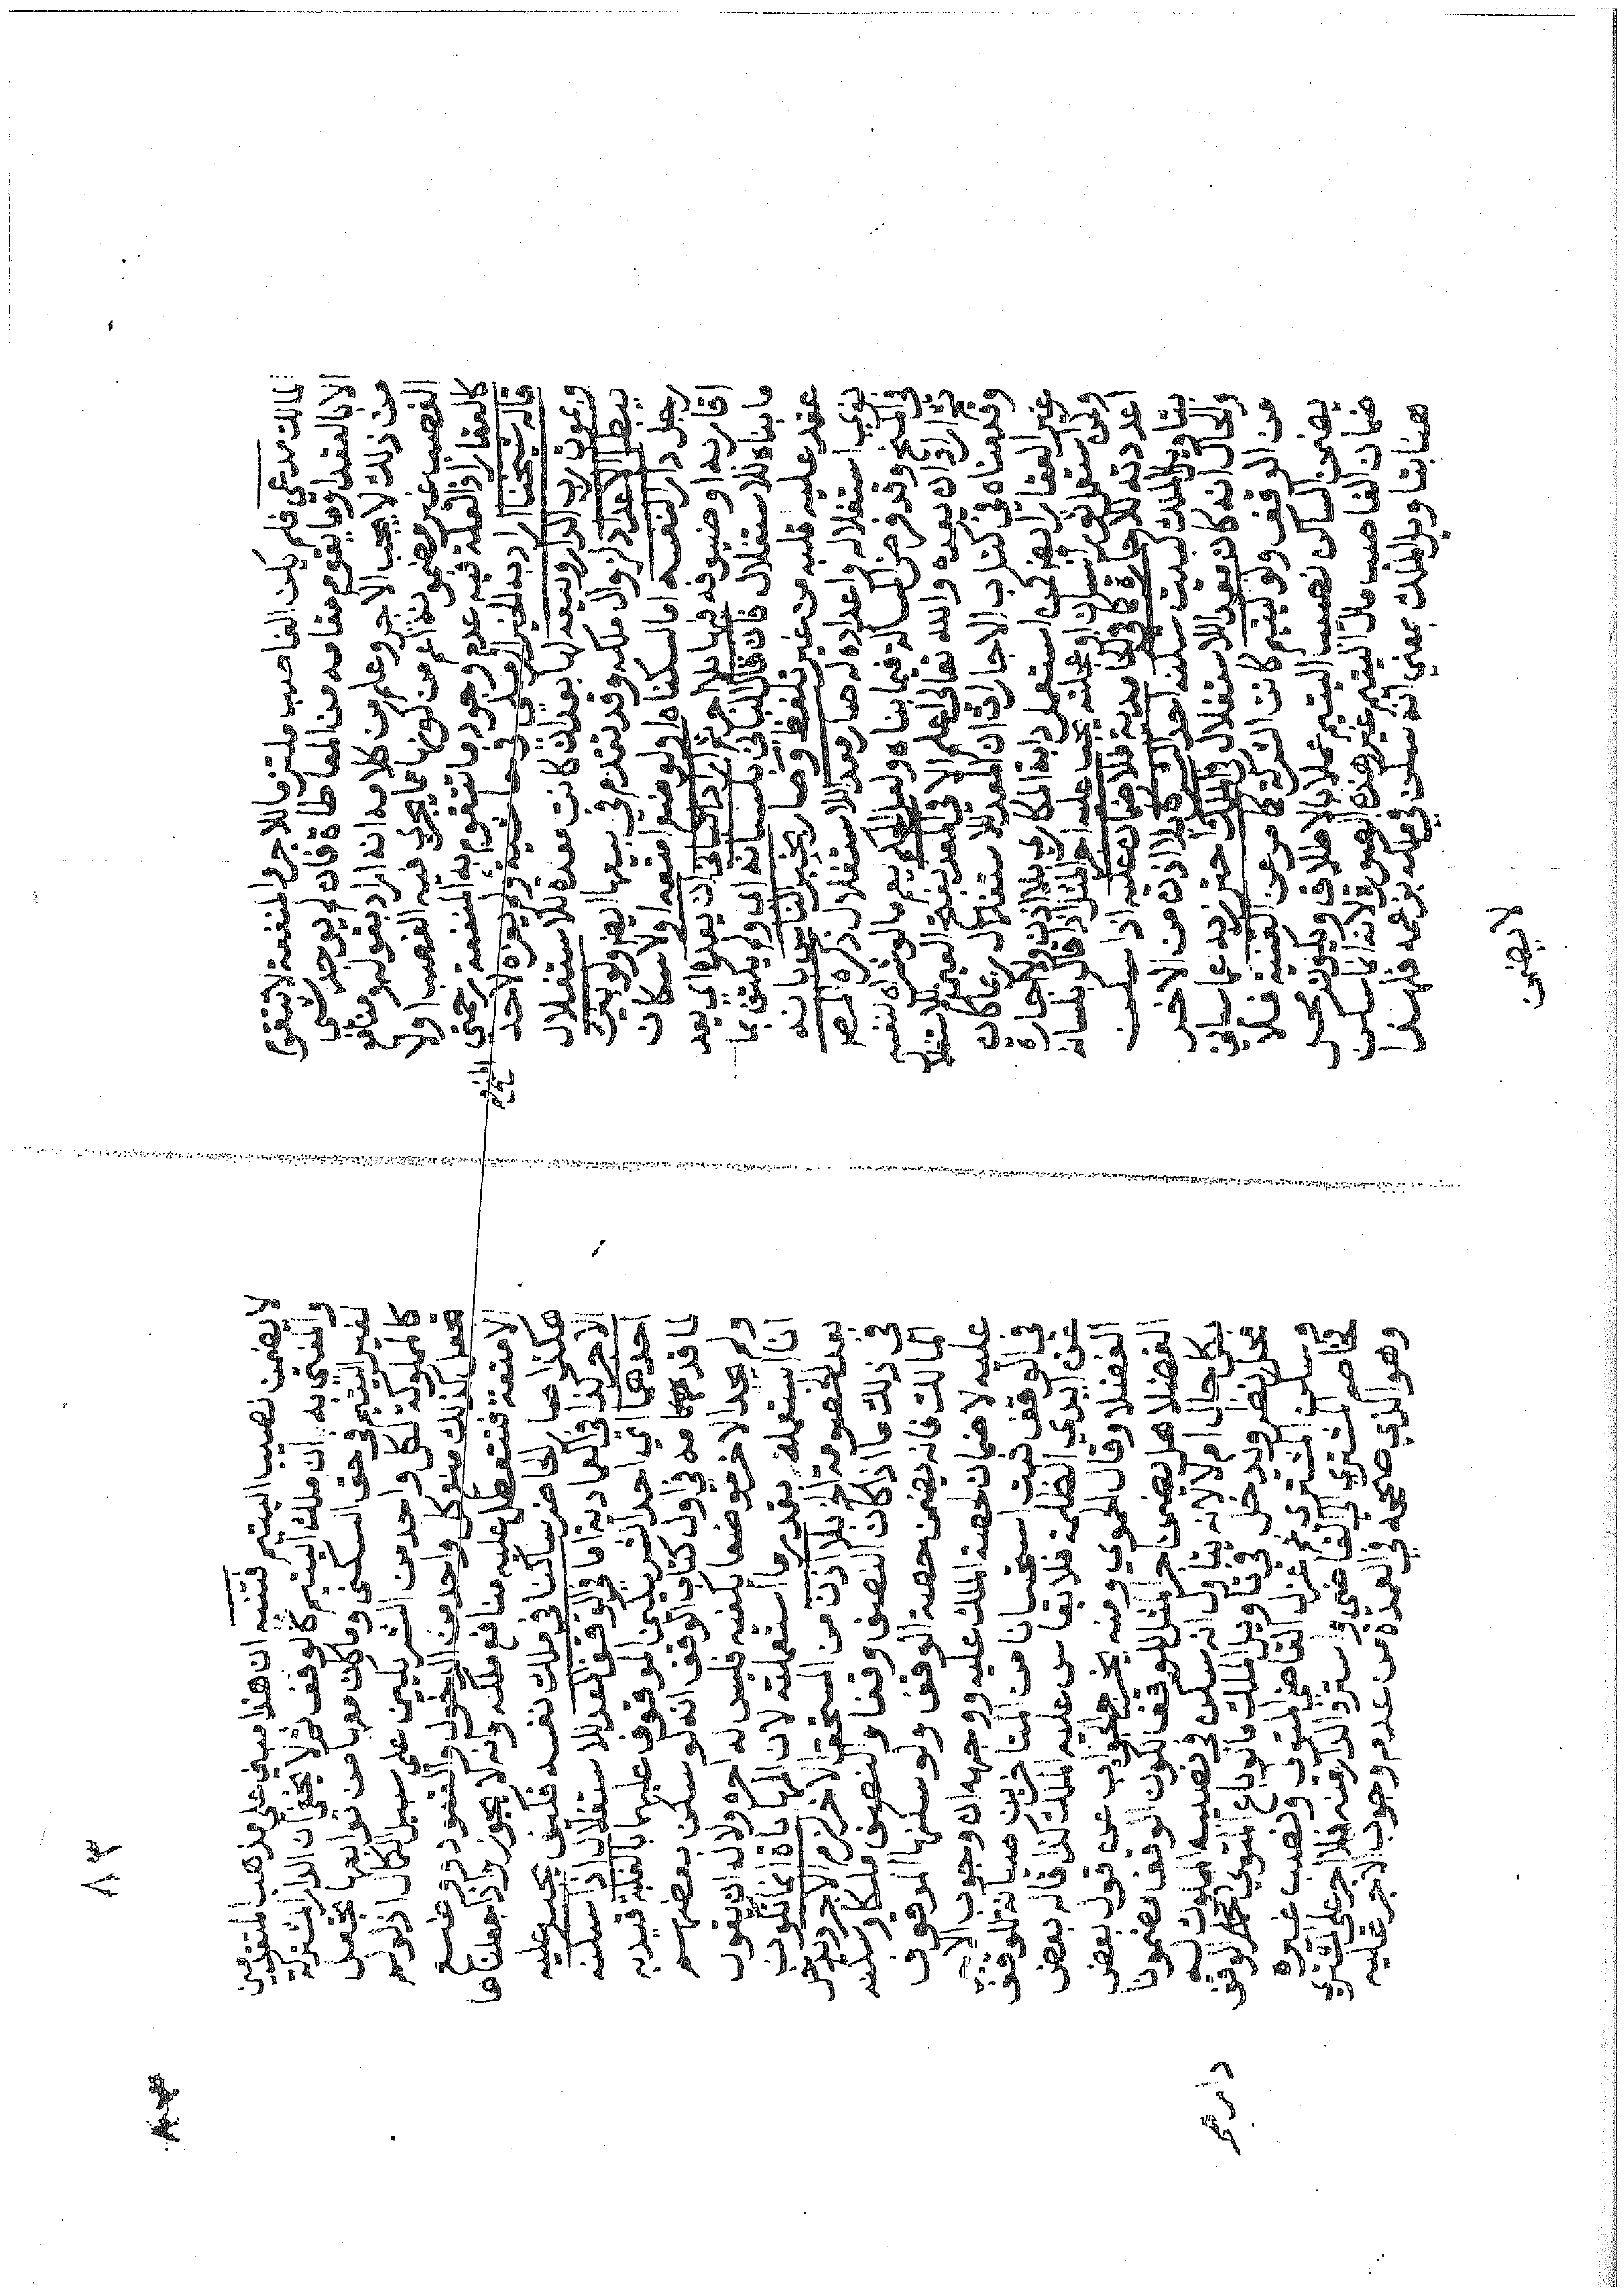 المالك مدعي فلم يكن الغاصب ملتزما للاجر والمنفعة لا تتقوم
الا بالعقد او ما يقوم مقامه من المعاطاة فان لم يوجد شي
من ذلك لا يجب الاجر وعلم من كلامه انه اراد بقوله ومنافع
الغصب غير مضمونة اعم من كونها مما يجري فيه الغصب او لا
كالعقار اذ العلة فيه عدم وجود ما تتقوم به المنفعة رحمتي
قاله شيخنا اراد به الخير الرملي في حاشية ولم يعزه لاحد
وبموت رب الدار وبيعه لها بعد ان كانت معدة للاستغلال
يبطل الاعداد لزوال ملكه وقد تقدم في بيعها ايضا ولو بنى
رجل دارا لنفسه اما لسكناه او لوضع امتعه او لاسكان
اقاربه او ضيوفه فيها بلا اجر ثم اراد الباني ان يعدها اي بعد
ما بناه للاستغلال فان قال الباني بلسانه اي ولم يكتف بما
عقد عليه قلبه من غير تلفظ وصار يخبر الناس بانه
ينوي استغلاله واعداده له صار معدا للاستغلال ذكره المص
في المنح وقد فرض المسالة فيما بناه ولعل الحكم يعم ما لو شراه لنفسه
ثم اراد ان يعده والله تعالى اعلم الا في المعد للاستغلال
وقدمناه في كتاب الاجارات ان المعد للاستغلال ربما كان
غير العقار ايضا فمن استعمل دابة المكاري بلا اذن ولا اجارة
ومن انسان او عجلته يجب عليه اجر المثل اذا قال بلسانه
اعددته للاجارة كما في الحامدية فلا ضمان عليه اذا سكن
بتاويل الملك كبيت سكنه احد الشركاء بلا اذن من الاخر
والحال انه كان معدا للاستغلال في الملك احترز به عما سياتي
من الوقف ولو ليتيم كانت الشركة كما مر عن القنية فلا
يضمن الساكن نصيب اليتيم عملا بالاطلاق ويكون محل
ضمان الغاصب مال اليتيم غير هذه الصورة لانه انما سكن
هنا بتاويل الملك بمعنى انه سكن في ملكه بزعمه فلهذا
لا يضمن
٨٣
لا يضمن نصيب اليتيم فتنبه ان هذا مبني على مذهب المتقدمين
والمفتي به ان ملك اليتيم كالوقف ثم لا يخفى ان الدار المشتركة
لغير اليتيم في حق السكنى وما كان معها من توابعها تجعل
كالمملوكة لكل واحد من الشريكين على سبيل الكمال اذ لو لم
تجعل كذلك منع كل واحد من الدخول والقعود ووضع
الامتعة فتتعطل عليه منافع ملكه وانه لا يجوز واذا جعلناها
هكذا صار الحاضر ساكنا في ملك نفسه فكيف يجب عليه
الاجر كذا في العمادية اما في الوقف المعد للاستغلال اذا سكنه
احدهما اي احد الشريكين الموقوف عليهما بالغلبة قيد به
لما قدمه في اول كتاب الوقف انه لو سكن بعضهم
ولم يجد الاخر موضعا يكفيه فليس له اجرة ولا له ان يقول
انا استعمله بقدر ما استعملته لان المهاياة انما تكون
بعد الخصومة الخ بلا اذن من المستحق الاخر لزم الاجر ويدخل
في ذلك ما اذا كان النصف وقفا والنصف ملكا وسكنه
المالك فانه يضمن حصة الوقف ولو سكنها الموقوف
عليه لا ضمان لحصة الملك عليه ووجهه ان وجوب الاجر
في الوقف ثبت استحسانا من المتاخرين صيانة للوقف
عن ايدي الظلمة فلا يقاس عليه الملك كذا قاله بعض
الفضلا وقال الحموي ومنه يخرج الجواب عن قول بعض
الفضلا هل يضمن اجر المثل للوقف لكون الوقف مضمونا
بكل حال ام لا لانه بتاول انه سكن في نصيبه المملوك له
محل نظر ويدخل في تاويل الملك ما لو باع المتولي دار الوقف
وسكن المشتري ثم عزل القاضي المتولي ونصب غيره
فخاصم المشتري الى القاضي واسترد الدار منه فلا اجر على المشتري
وهو الذي صححه في العمدة من عدم وجوب الاجر عليه